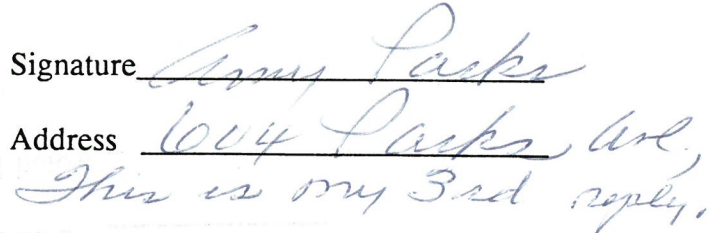 Signature Amy Parks
Address 604 Parks Ave,
This is my 3rd reply.